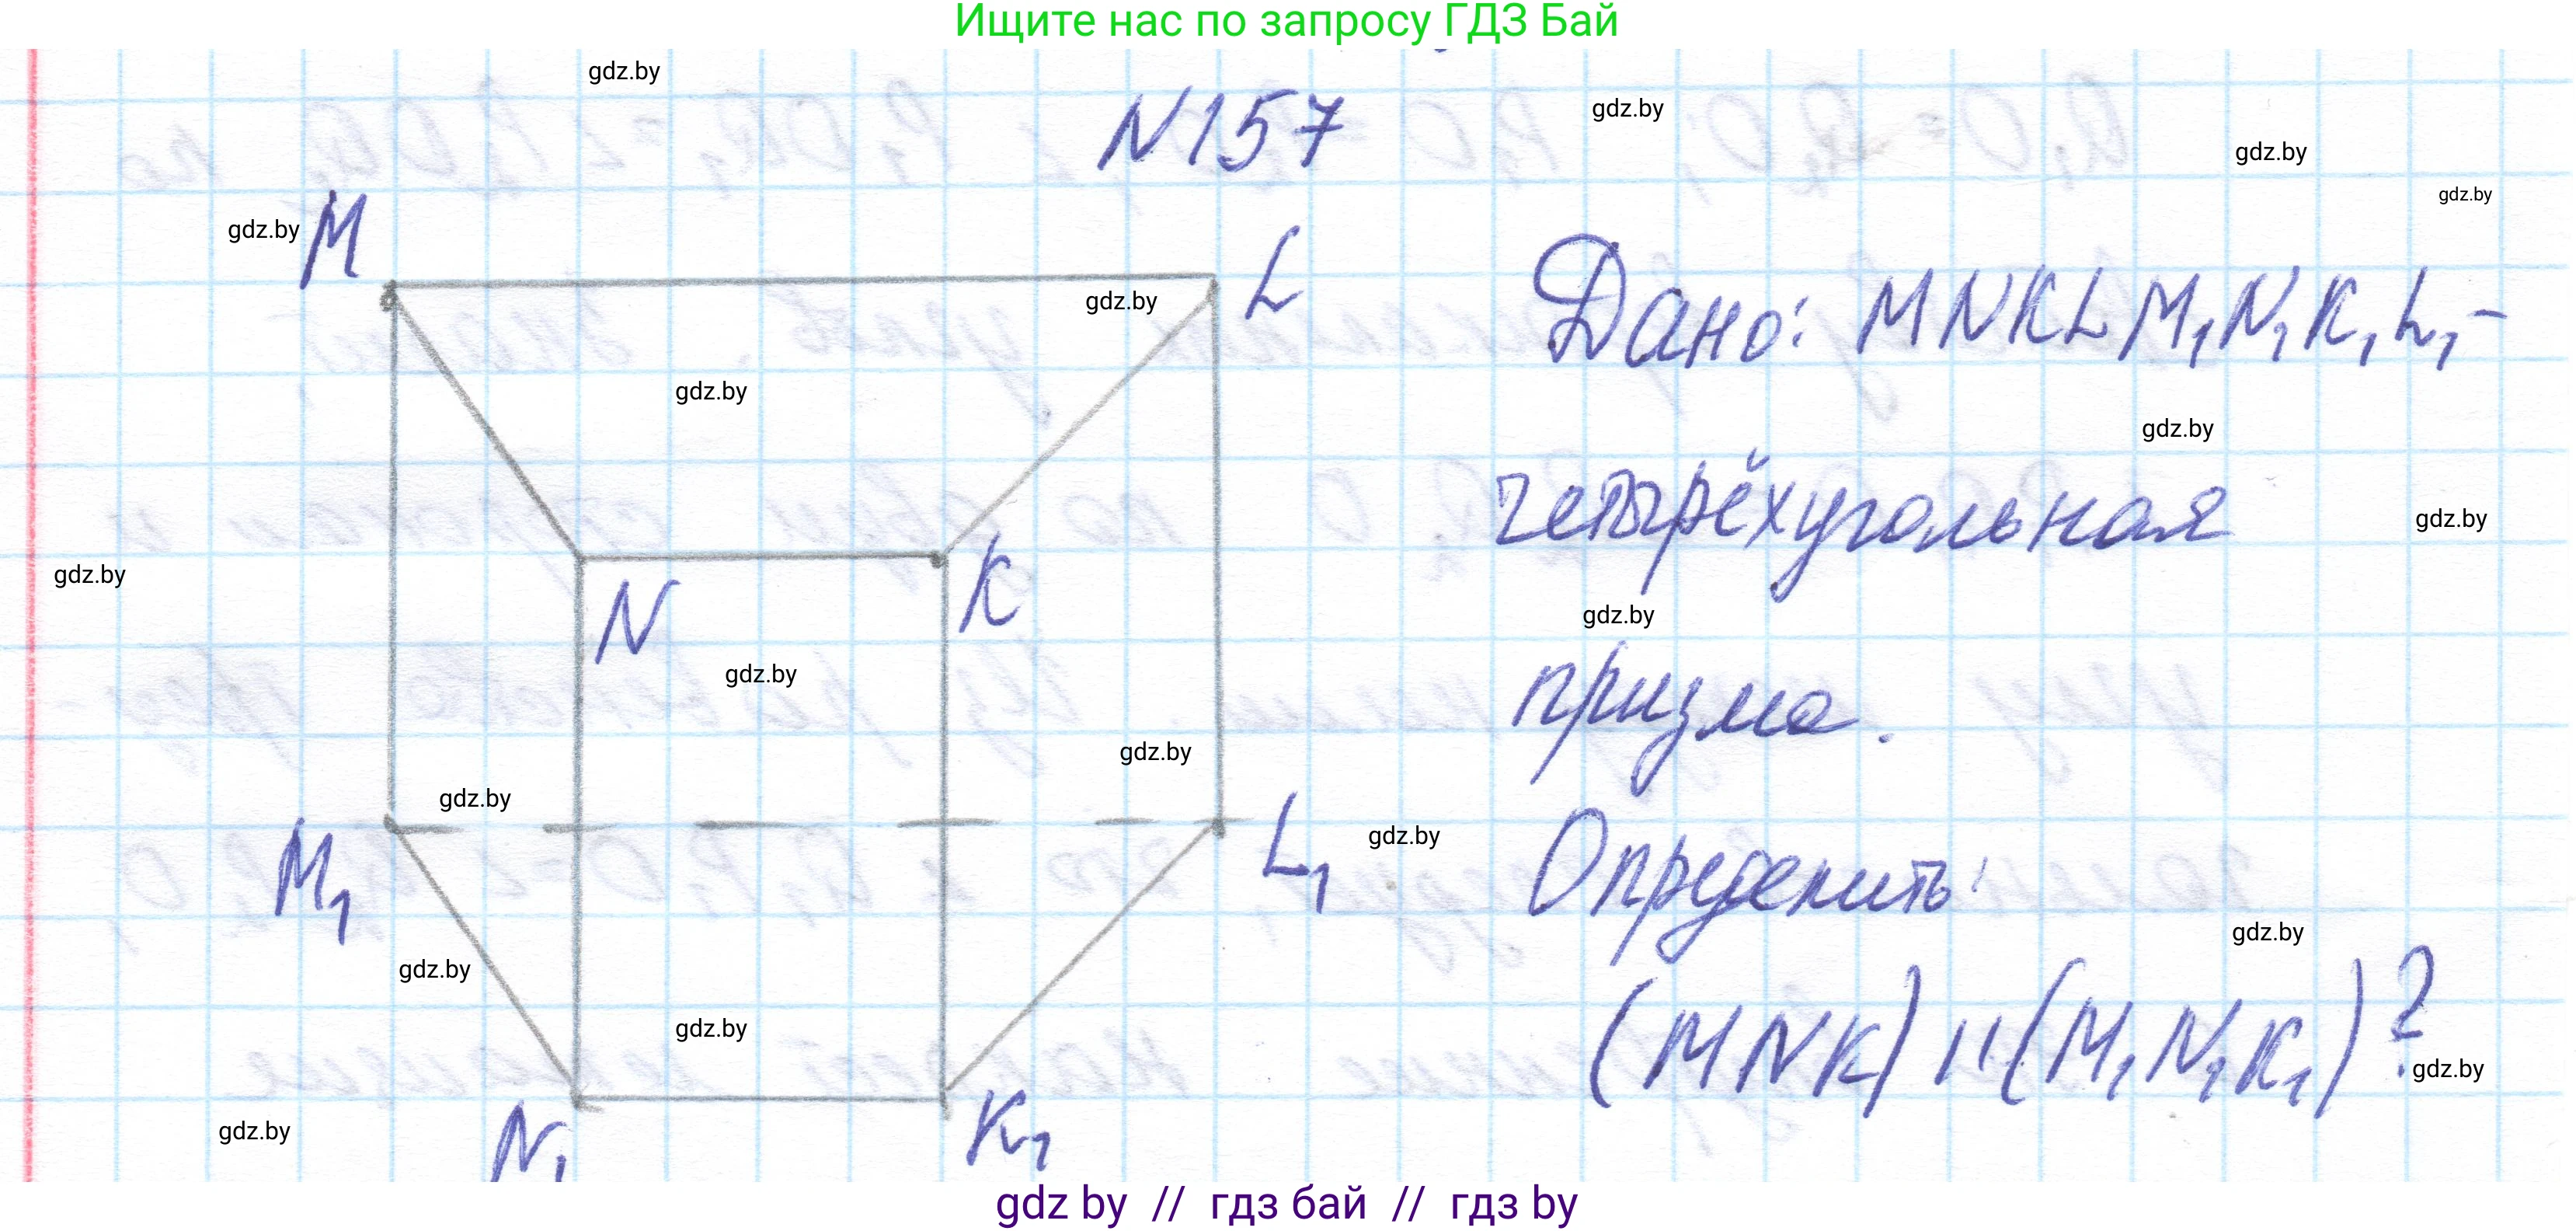 Ищите нас по запросу ГДЗ Бай
gdz.by
N157
gdz.by
gdz.by
gdz.by
M
gdz.by
L
gdz.by
Дано: MNKLM₁N₁K₁L₁-
gdz.by
gdz.by
четырёхугольная
gdz.by
gdz.by
N
K
gdz.by
gdz.by
призма.
gdz.by
gdz.by
M₁
L₁
gdz.by
Определить:
gdz.by
gdz.by
(MNK) || (M₁N₁K₁)?
gdz.by
gdz.by
gdz.by
N₁
K₁
gdz by // гдз бай // гдз by